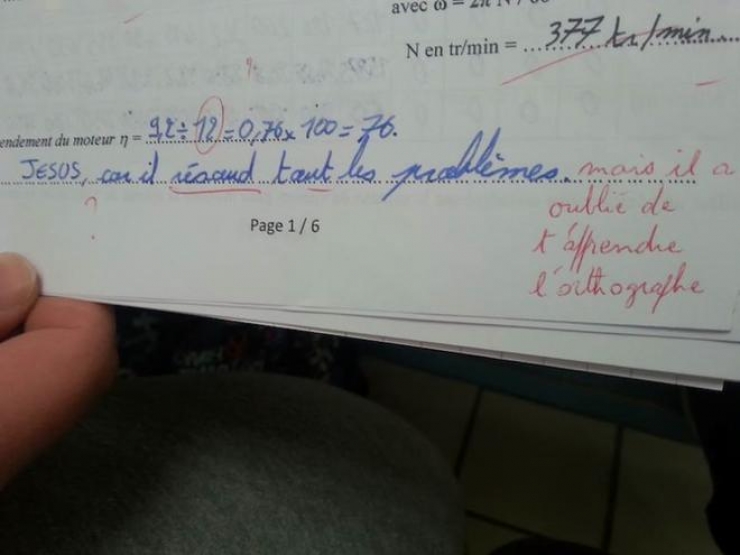 avec ω = 2π N / 60
N en tr/min = ...377 tr/min...
endement du moteur η = 9,2 ÷ 12 = 0,76 x 100 = 76.
JESUS, car il résoud tout les problèmes. mais il a
?
oublié de
Page 1 / 6
t'apprendre
l'orthographe